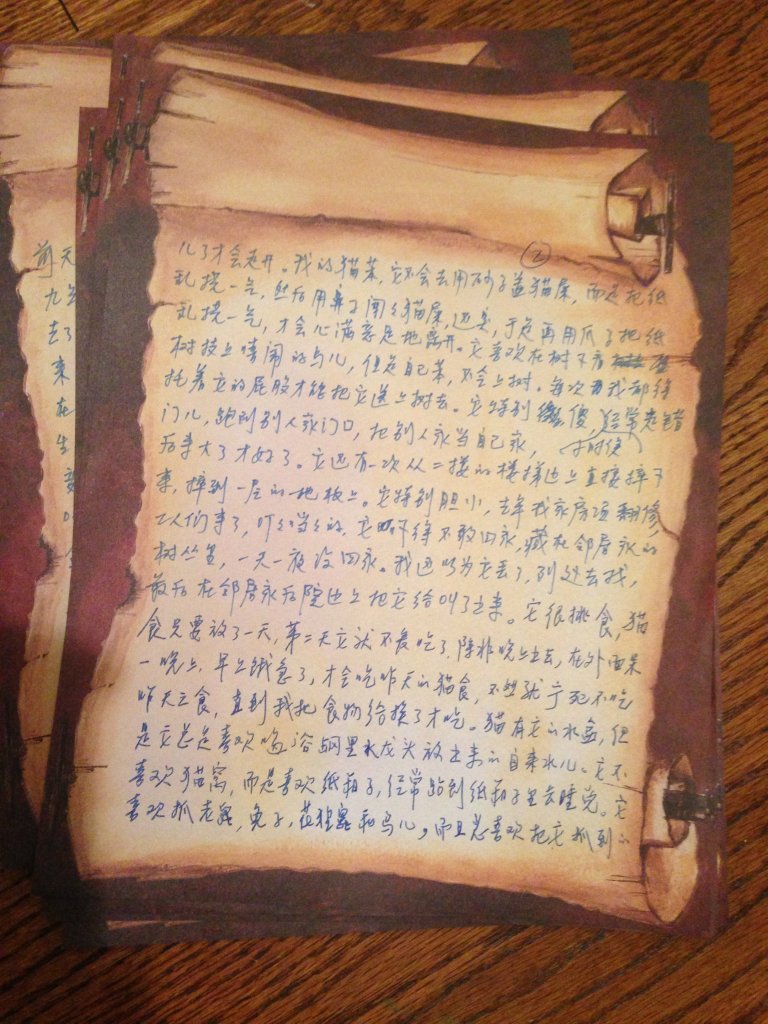 ②
儿了才会走开。我的猫茉,它不会去用砂子盖猫屎,而是把纸
乱挠一气,然后用鼻子闻闻猫屎,还臭,于是再用爪子把纸
乱挠一气,才会心满意足地离开。它喜欢在树下看
树枝上嘻闹的鸟儿,但是自己茉,不会上树。每次我都得
托着它的屁股才能把它送上树去。它特别傻,经常走错
门儿,跑到别人家门口,把别人家当自己家,
后来大了才好了。它还有一次从二楼的楼梯边上直接摔下
来,摔到一层的地板上。它特别胆小,去年我家房顶翻修,
工人们来了,叮叮当当的,它吓得不敢回家,藏在邻居家的
树丛里,一天一夜没回家。我还以为它丢了,到处去找,
最后在邻居家后院边上把它给叫了出来。它很挑食,猫
食只要放了一天,第二天它就不爱吃了,除非晚上出去,在外面呆
一晚上,早上饿急了,才会吃昨天的猫食,不然就宁死不吃
昨天之食,直到我把食物给换了才吃。猫有它的水盆,但
是它总是喜欢喝浴缸里水龙头放出来的自来水儿。它不
喜欢猫窝,而是喜欢纸箱子,经常跑到纸箱子里去睡觉。它
喜欢抓老鼠,兔子,花狸鼠和鸟儿。而且总喜欢把它抓到的
前天
去了
来
在
生